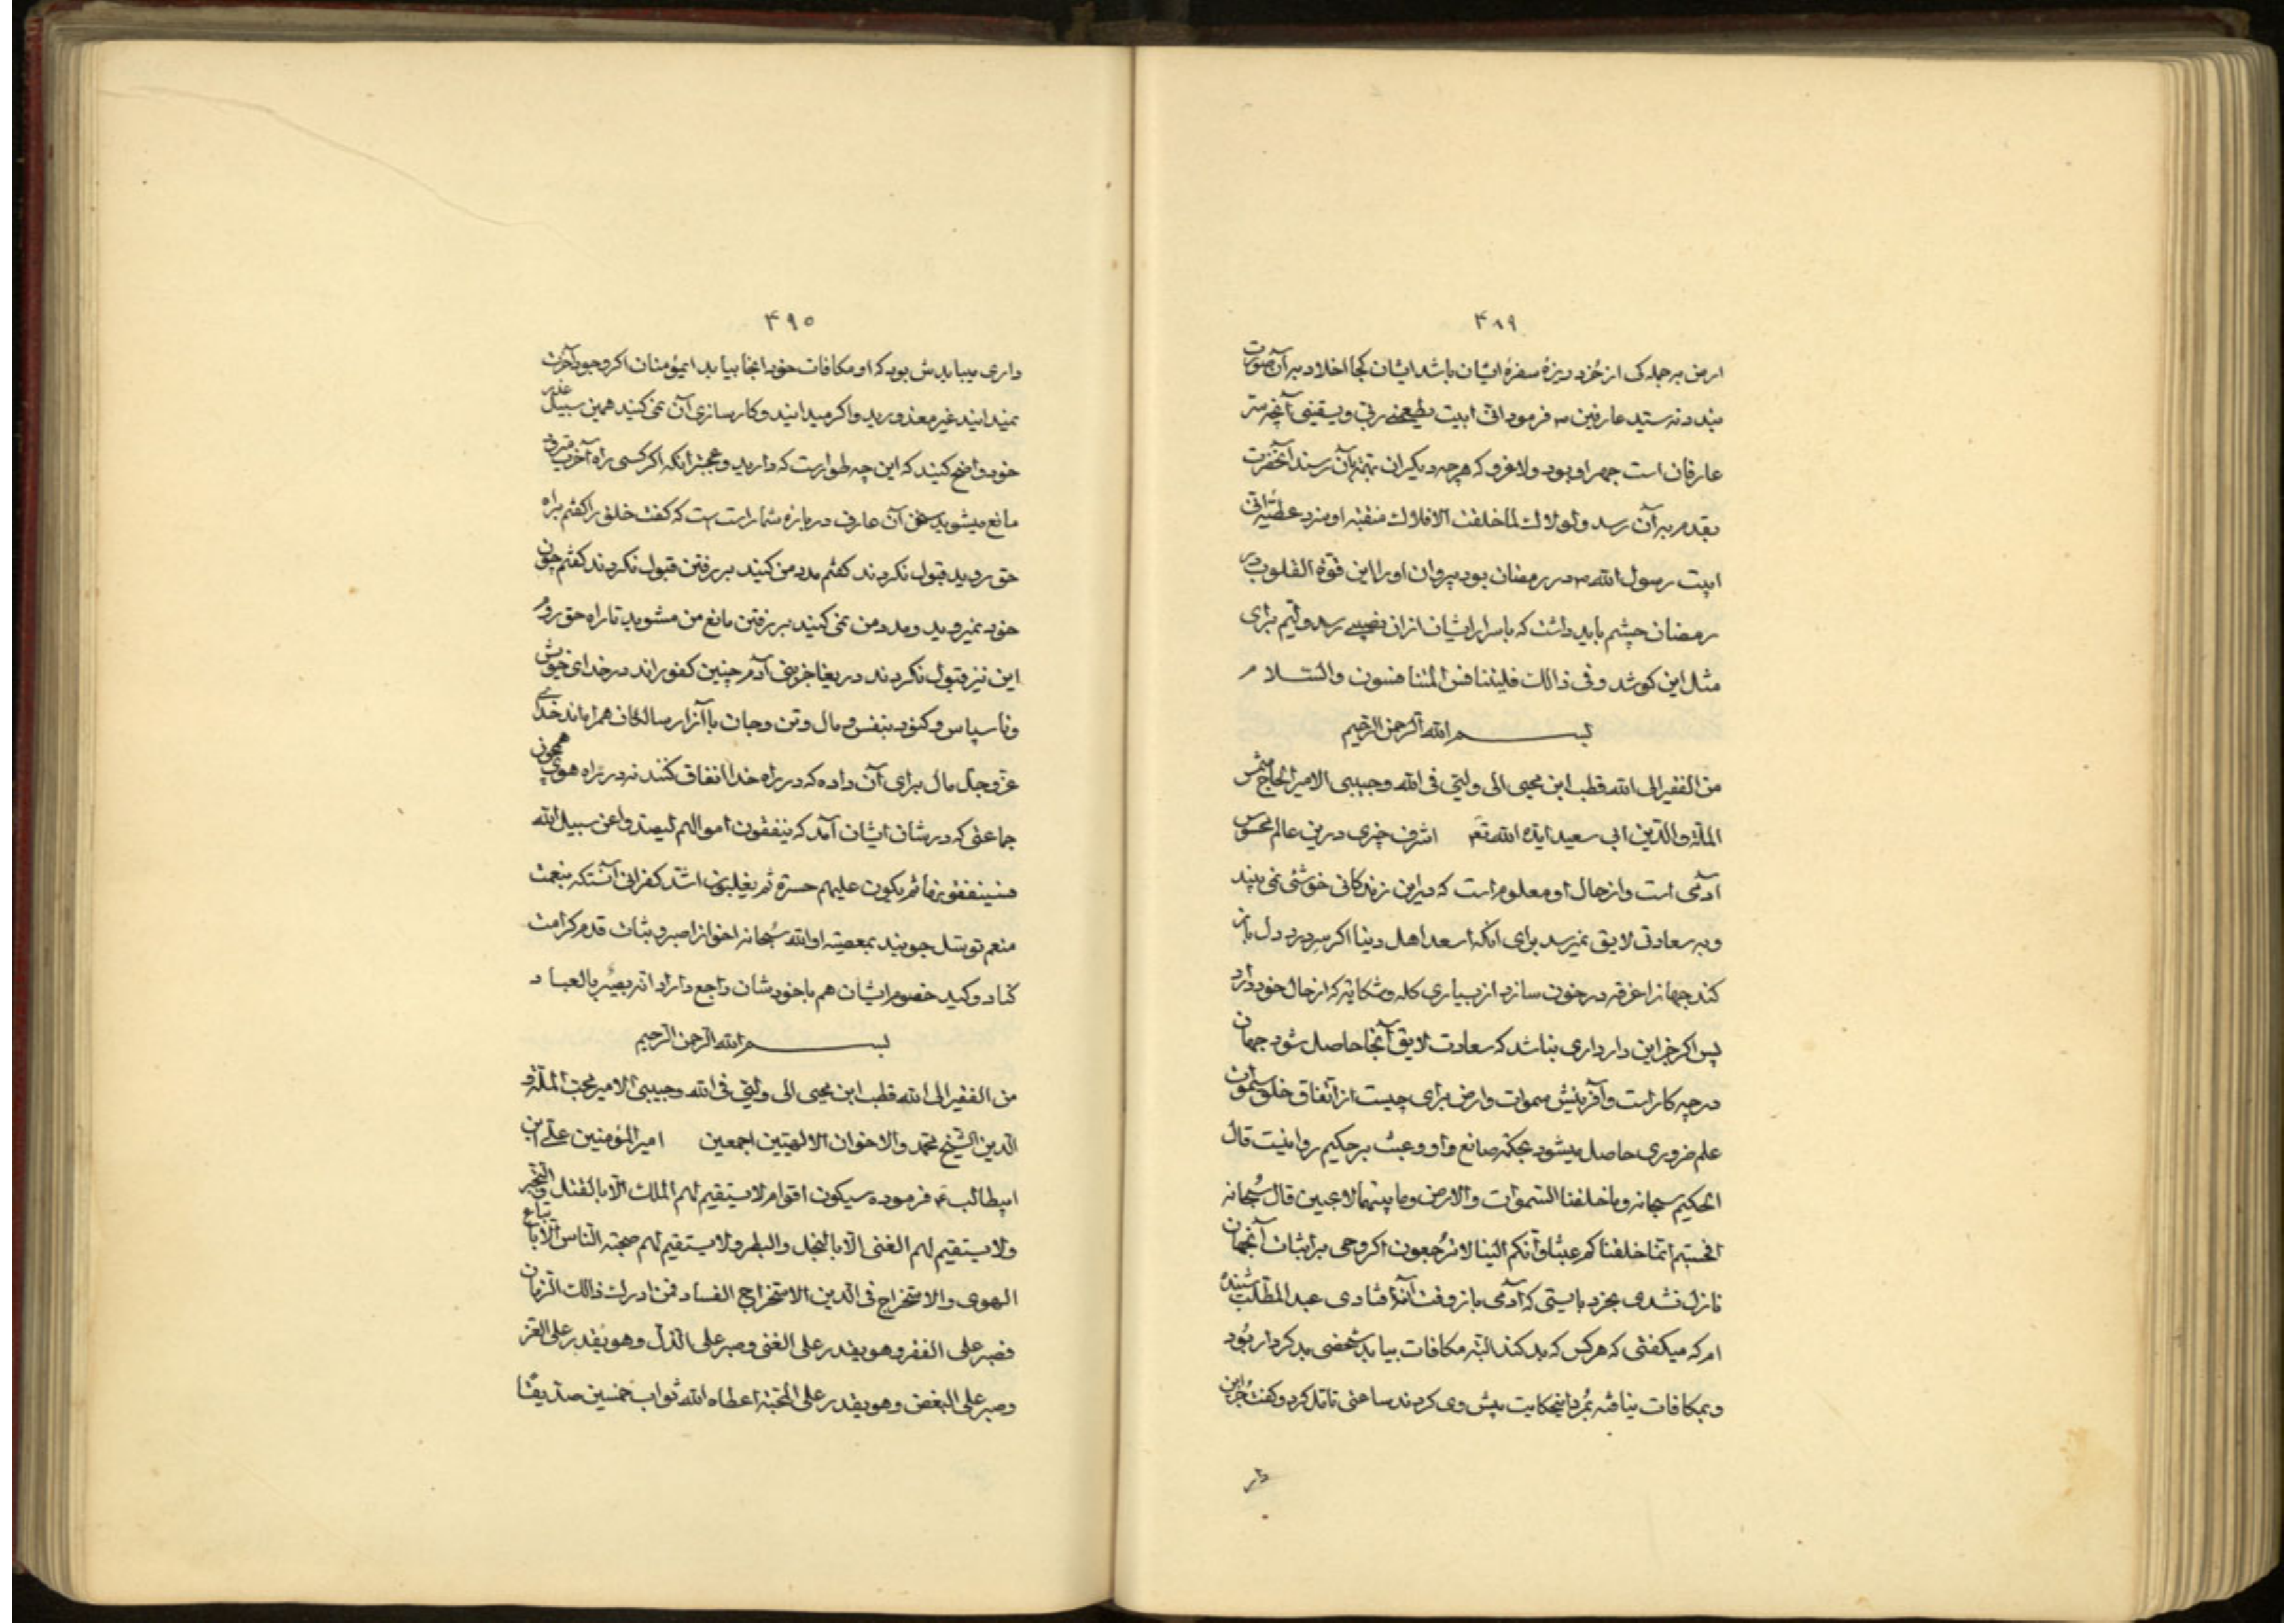 ۴۸۹
ازمن برجمله کی از خرد ریزهٔ سفرهٔ ایشان باشد ایشان کجا اخلاد بر آن صورت
بندد نه سید عارفین ص فرمود انی ابیت یطعمنی ربی ویسقینی آنچه ستر
عارفان است جهر او بود ولاغرو که هرچه دیگران بهمت بآن رسند آنحضرت
بقدم بر آن رسد ولولاک لما خلقت الافلاک منقبه او مزد عطیه انی
ابیت رسول الله ص در رمضان بود پیروان او را این قوة القلوب در
رمضان چشم باید داشت که باسرار ایشان ازان نصیبی رسد واتم برای
مثل این کوشد وفی ذالک فلیتنافس المتنافسون والسلام
بسم الله الرحمن الرحیم
من الفقیر الی الله قطب ابن محیی الی ولیی فی الله وحبیبی الامیر الحاج شمس
الملة والدین ابی سعید ایده الله تع اشرف چیزی درین عالم محسوس
آدمی است واز حال او معلوم است که درین زندکانی خوشی نمی بیند
وبه سعادتی لایق نمیرسد برای انکه اسعد اهل دنیا اکر سر درد دل باز
کند جهانرا غرقه در خون سازد از بسیاری کله وشکایه که از حال خود دارد
پس اکر جز این دار داری نباشد که سعادت لایق آنجا حاصل شود جهان
درچه کار است وآفرینش سموات وارض برای چیست از اتفاق خلق سموات
علم ضروری حاصل میشود بحکمة صانع واو وعبث بر حکیم روا نیست قال
الحکیم سبحانه وما خلقنا السموات والارض وما بینهما لاعبین قال سبحانه
افحسبتم انما خلقناکم عبثا وانکم الینا لاترجعون اکر وحی بر اثبات آنجهان
نازل نشدی بخرد بایستی که آدمی باز وقت آنه افتادی عبد المطلب شنیده
ام که میکفتی که هرکس که بد کند البته مکافات بیابد شخصی بد کردار بود
وبمکافات نیافته بمرد اینحکایت پیش وی کردند ساعتی تامل کرد وکفت جز این
دار
۴۹۰
داری میباید ش بود که او مکافات خود انجا بیابد ایمؤمنان اکر وجود آخرت
نمیدانید غیر معذورید واکر میدانید وکارسازی آن نمی کنید همین سبیل عذر
خود واضح کنید که این چه طوار ست که دارید وعجبتر انکه اکر کسی راه آخرت میرود
مانع میشوید سخن آن عارف در بارهٔ شما راست است که کفت خلق را کفتم براه
حق روید قبول نکردند کفتم مدد من کنید بر رفتن قبول نکردند کفتم چون
خود نمیروید ومدد من نمی کنید بر رفتن مانع من مشوید تا راه حق روم
این نیز قبول نکردند دریغا جز بنی آدم چنین کفور اند در خدای خویش
وناسپاس وکنود بنفس ومال وتن وجان با آزار سالکان همراه اند خدای
عز وجل مال برای آن داده که در راه خدا انفاق کنند نه در راه هوی همچون
جماعتی که در شان ایشان آمد که ینفقون اموالهم لیصدوا عن سبیل الله
فسینفقونها ثم یکون علیهم حسرة ثم یغلبون اشد کفران آنستکه بنعمت
منعم توسل جویند بمعصیته او الله سبحانه اخوانرا صبر وثبات قدم کرامت
کناد وکید خصوم ایشان هم باخودشان راجع داراد انه بصیر بالعباد
بسم الله الرحمن الرحیم
من الفقیر الی الله قطب ابن محیی الی ولیی فی الله وحبیبی الامیر محب الملة و
الدین الشیخ محمد والاخوان الالهیین اجمعین امیر المؤمنین علی ابن
ابیطالب ع فرموده سیکون اقوام لایستقیم لهم الملک الا بالقتل والتجبر
ولایستقیم لهم الغنی الا بالبخل والبطر ولایستقیم لهم صحبة الناس الا باتباع
الهوی والاستخراج فی الدین الاستخراج الفساد فمن ادرک ذالک الزمان
فصبر علی الفقر وهو یقدر علی الغنی وصبر علی الذل وهو یقدر علی العز
وصبر علی البغض وهو یقدر علی المحبة اعطاه الله ثواب خمسین صدیقا